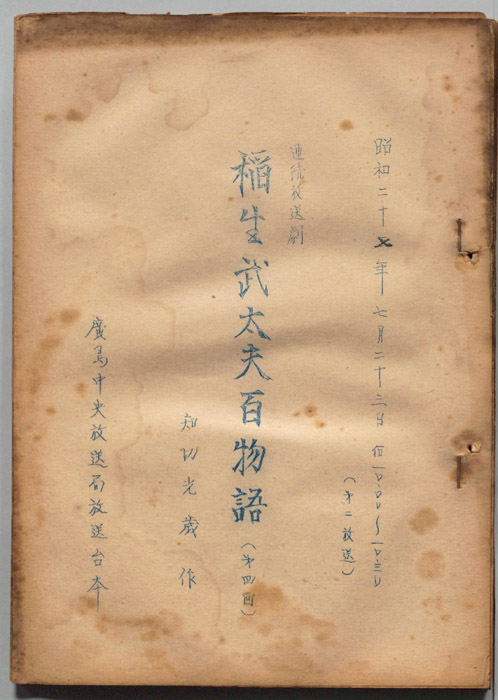 昭和二十七年七月二十三日 后一〇.〇〇〜一〇.三〇
(第二放送)
連続放送劇
稲生武太夫百物語(第四回)
知切光歳 作
廣島中央放送局放送台本